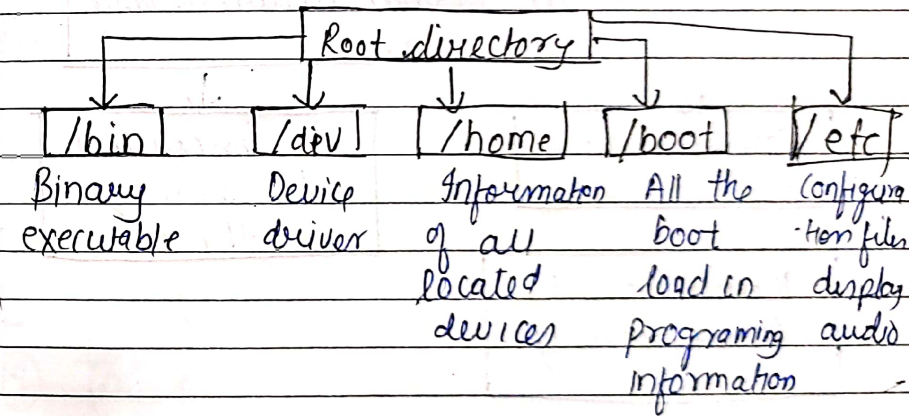 Root directory
/bin
/dev
/home
/boot
/etc
Binary
executable
Device
driver
Information
of all
located
devices
All the
boot
load in
programing
information
configura
-tion files
display
audio